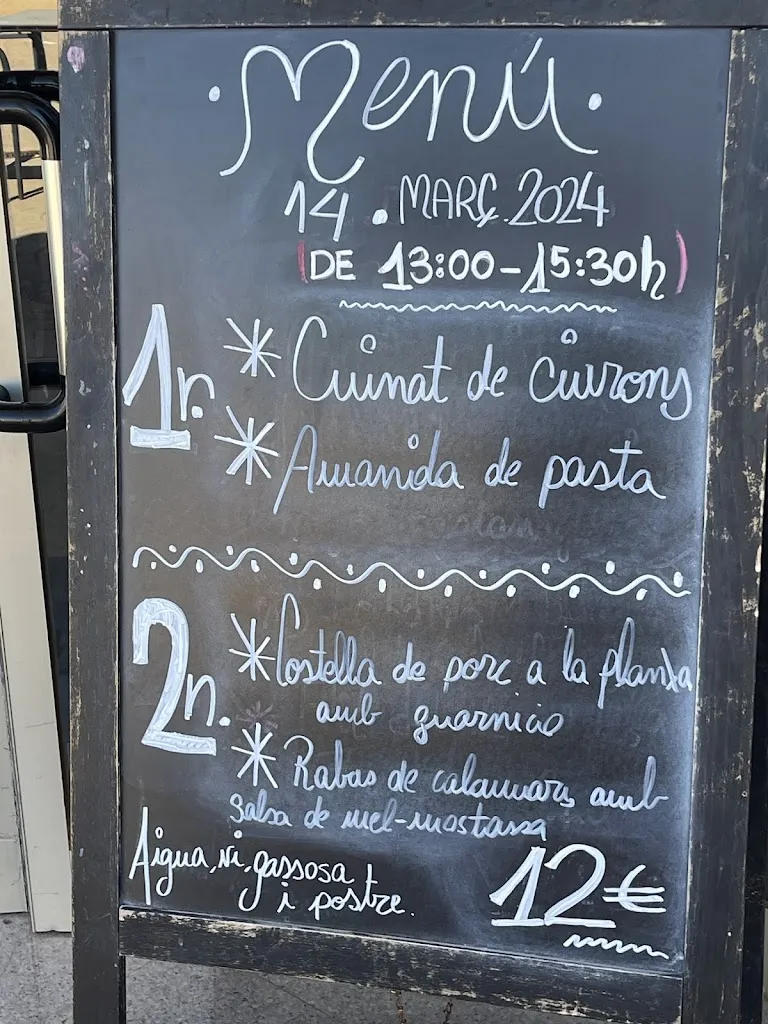 ·Menú·
14. MARÇ.2024
(DE 13:00-15:30h)
1r. * Cuinat de ciurons
* Amanida de pasta
2n. * Costella de porc a la planxa
amb guarnicio
* Rabas de calamars amb
salsa de mel-mostassa
Aigua, vi, gassosa
i postre.
12€